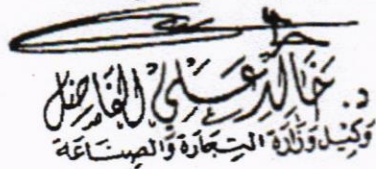 د. خَالِد عَـلِـي الفَاضِل
وَكِيْل وَزَارَة التِـجَارَة وَالصِـنَـاعَة